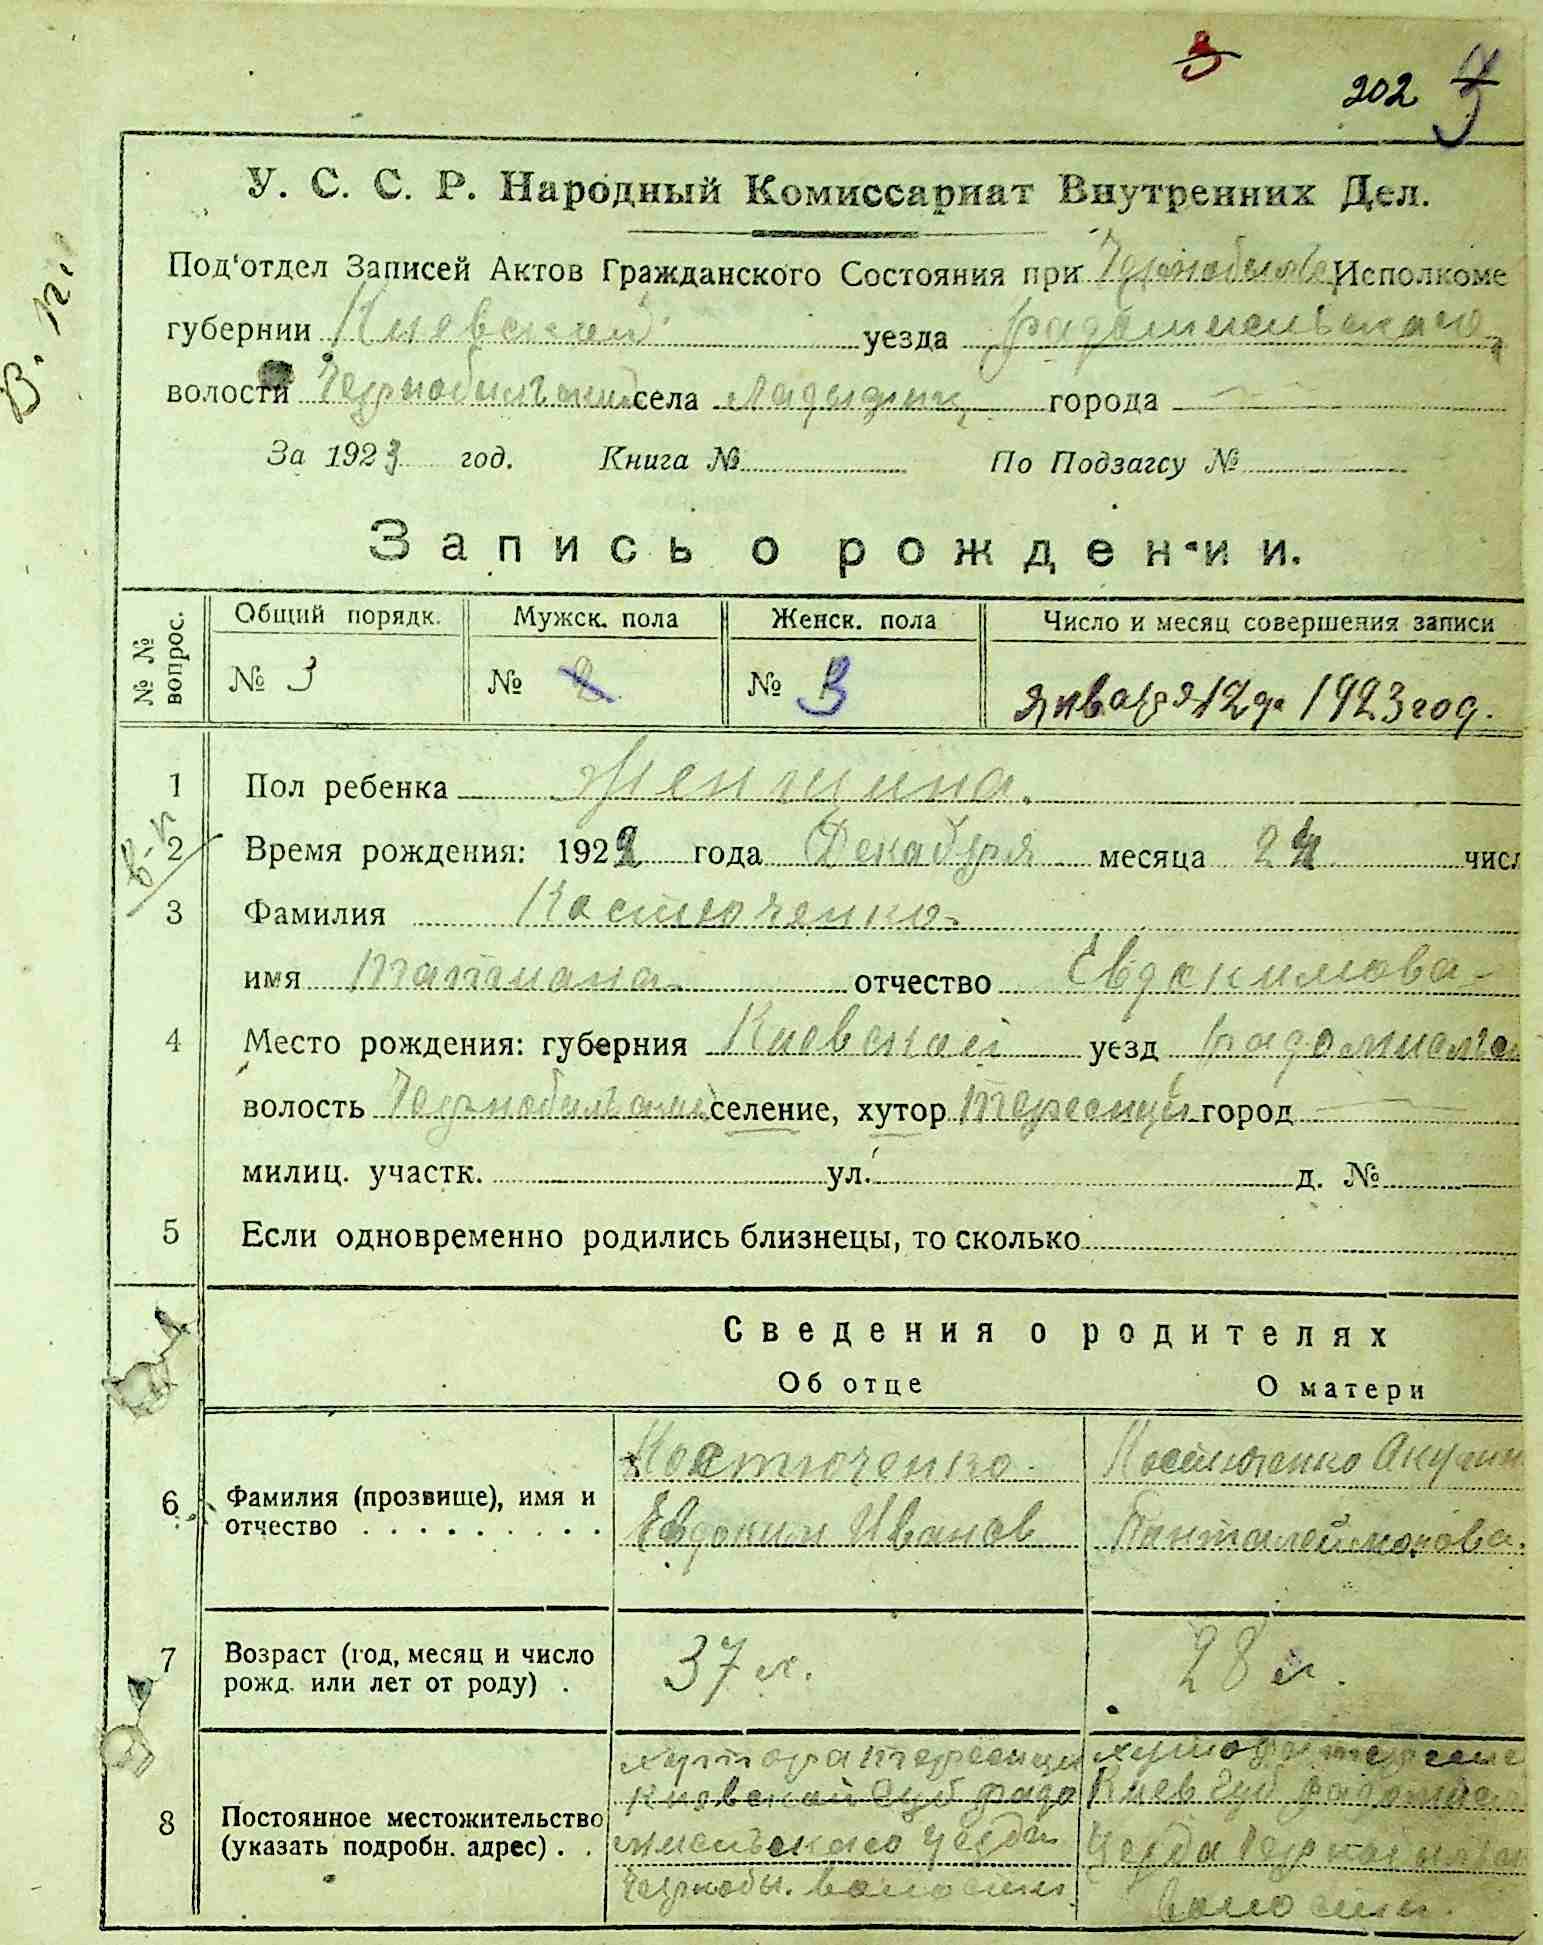 3
202
В. п.
У. С. С. Р. Народный Комиссариат Внутренних Дел.
Под'отдел Записей Актов Гражданского Состояния при Исполкоме
губернии Киевской уезда радомисльскаго
волости села города
За 1923 год. Книга № По Подзагсу №
Запись о рождении.
№ № вопрос. Общий порядк. Мужск. пола Женск. пола Число и месяц совершения записи
№ 3 № № 3 Января 12 дн 1923 год.
1 Пол ребенка Женщина.
в-п
2 Время рождения: 1922 года Декабря месяца числ
3 Фамилия Костюченко
имя татиана отчество Евдокимова
4 Место рождения: губерния Киевской уезд
волость селение, хутор город
милиц. участк. ул. д. №
5 Если одновременно родились близнецы, то сколько
Сведения о родителях
Об отце О матери
6 Фамилия (прозвище), имя и отчество Костюченко Евдоким Иванов Костюченко Пантелеймонова.
7 Возраст (год, месяц и число рожд. или лет от роду) 37 л. 28 л.
8 Постоянное местожительство (указать подробн. адрес) хутора Киевской Губ радомисльскаго уезда Чернобы. волости Киев Губ уезда волости.